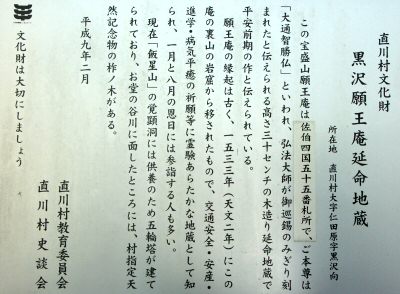 直川村文化財
黒沢願王庵延命地蔵
所在地 直川村大字仁田原字黒沢向
この宝盛山願王庵は佐伯四国五十五番札所で、ご本尊は
「大通智勝仏」といわれ、弘法大師が御巡錫のみぎり刻
まれたと伝えられる高さ三十センチの木造り延命地蔵で
平安前期の作と伝えられている。
願王庵の縁起は古く、一五三三年（天文二年）にこの
庵の裏山の岩窟から移されたもので、交通安全・安産・
進学・病気平癒の祈願等に霊験あらたかな地蔵として知
られ、一月と八月の恩日には参詣する人も多い。
現在「飯星山」の覚顕洞には供養のため五輪塔が建て
られており、お堂の谷川に面したところには、村指定天
然記念物の柞ノ木がある。
平成九年二月
直川村教育委員会
直川村史談会
文化財は大切にしましょう